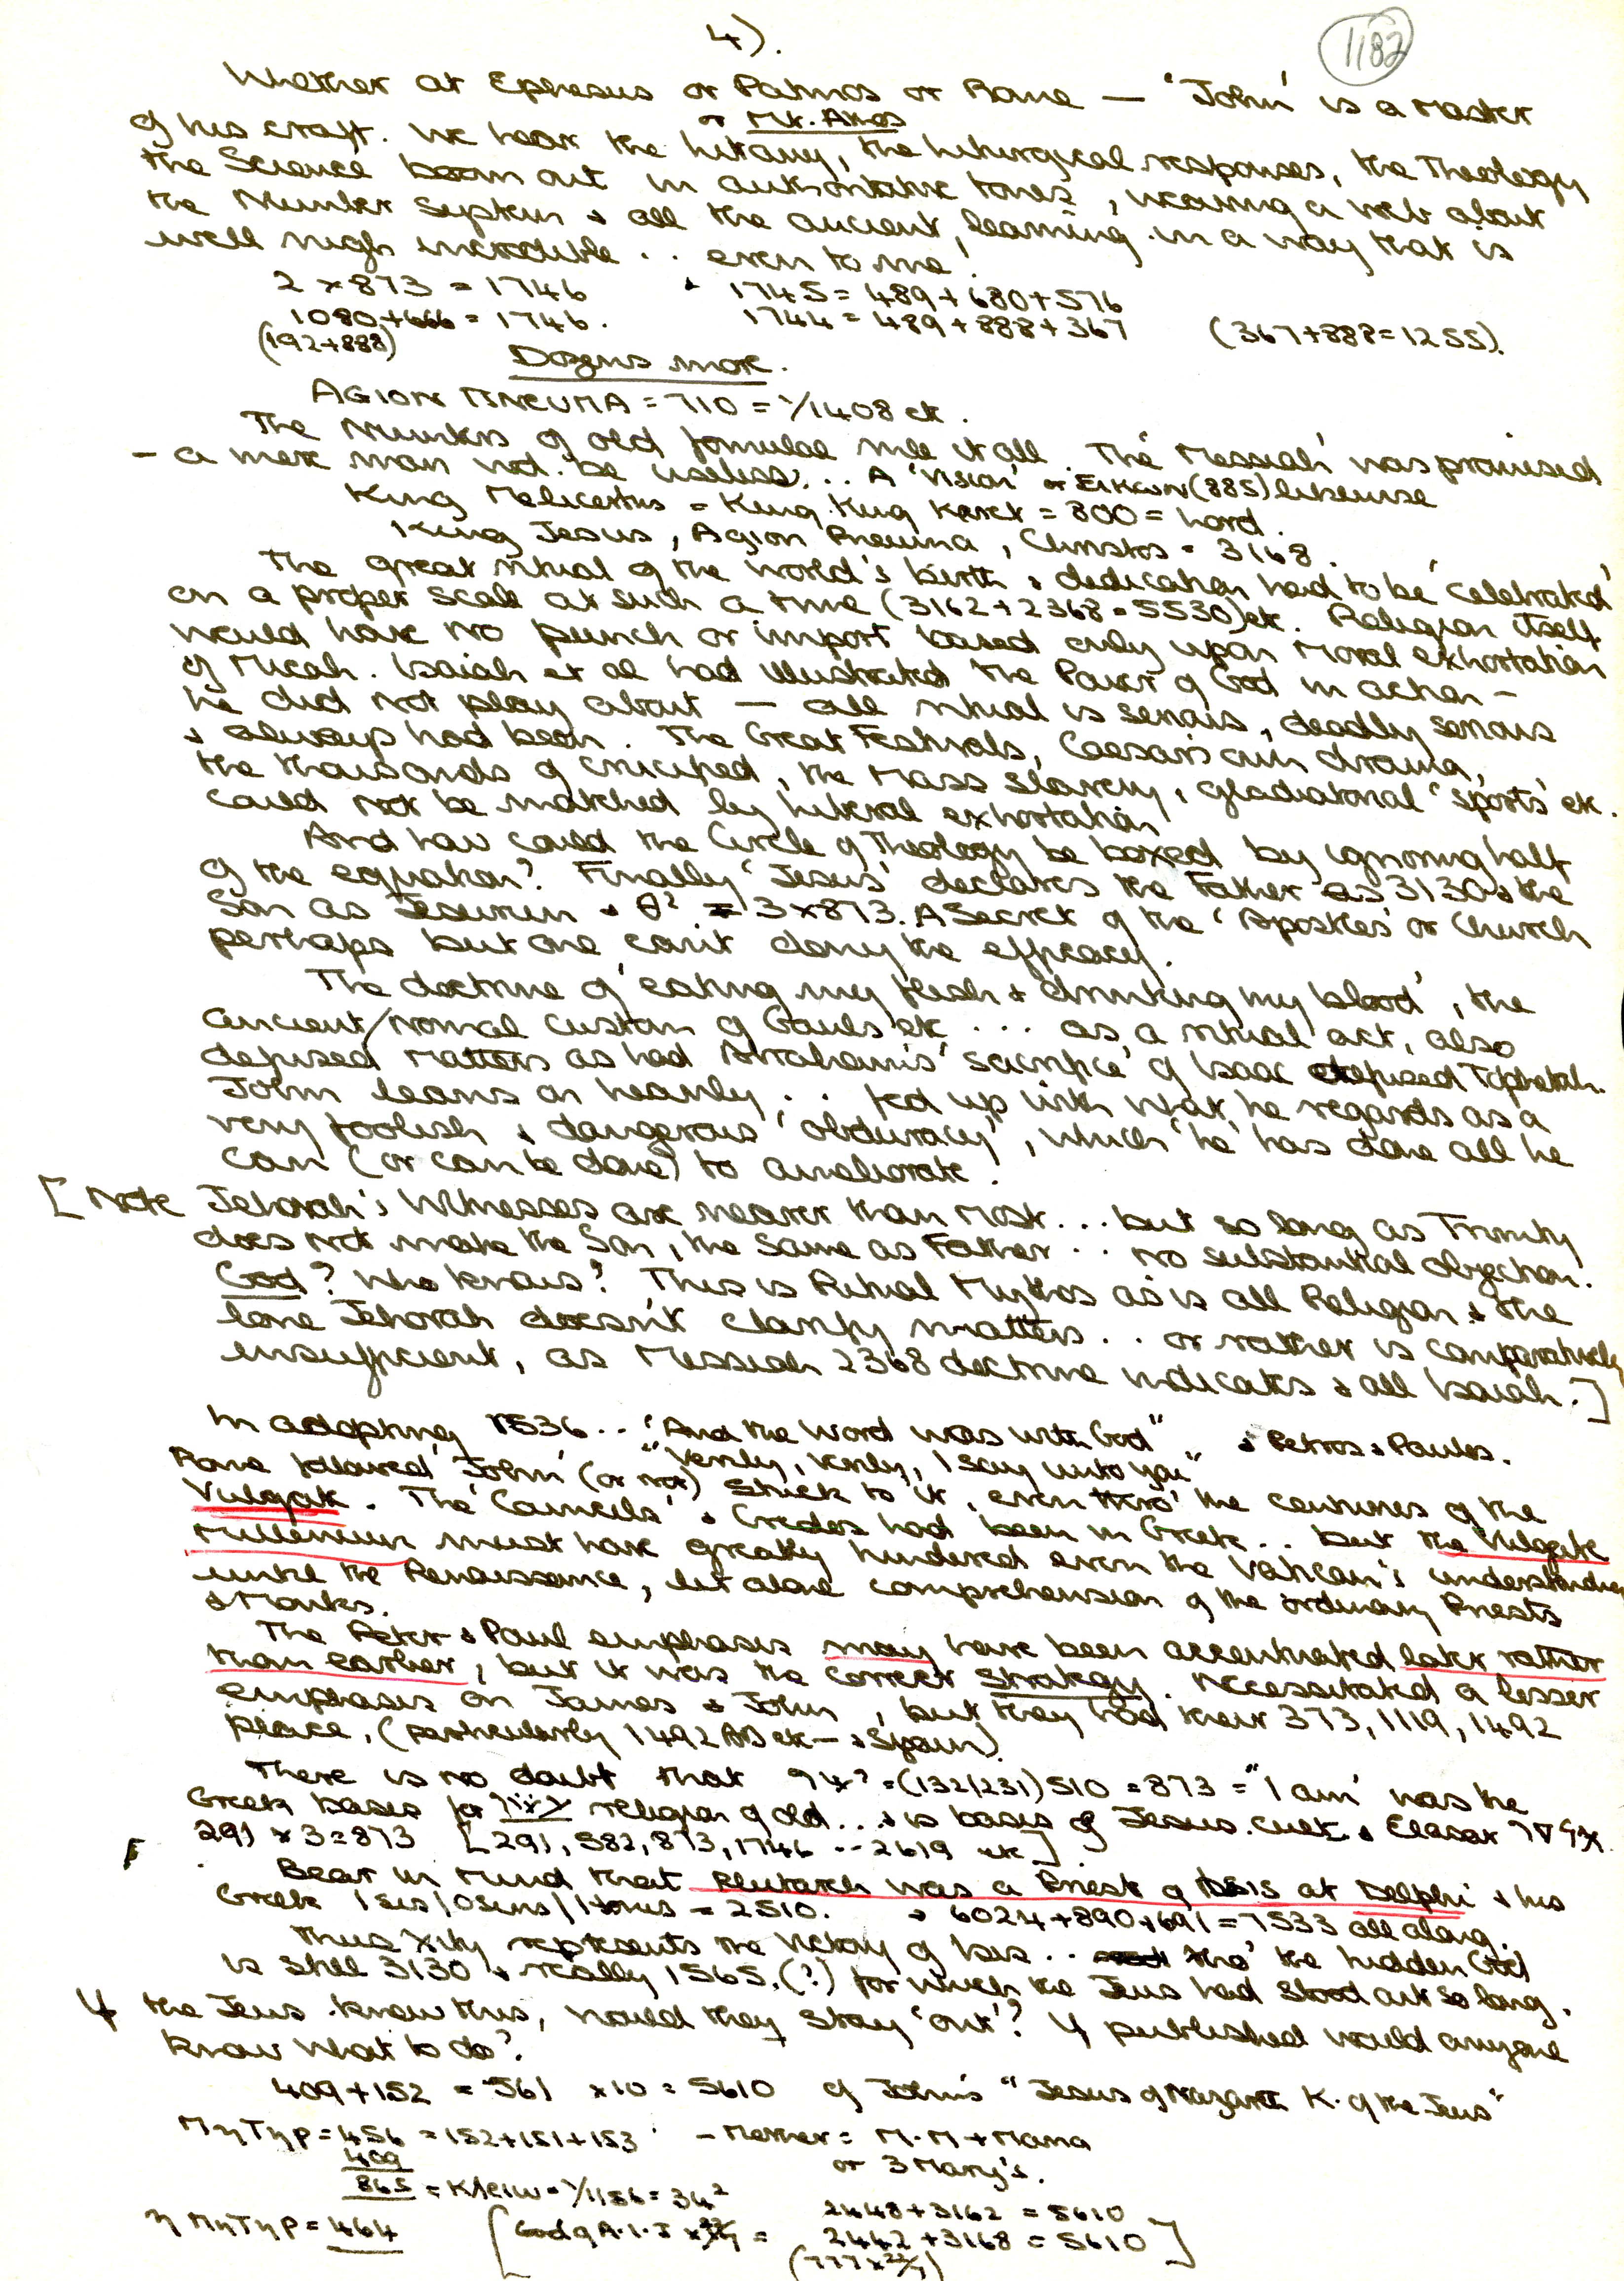 4).
1182
Whether at Ephesus or Patmos or Rome — 'John' is a master
or Mt. Athos
of his craft. We hear the litany, the liturgical responses, the Theology
the Science born out in authoritative tones, weaving a web about
the Number System & all the ancient learning in a way that is
well nigh incredible .. even to me!
2 x 873 = 1746 & 1745 = 489 + 680 + 576
1080 + 666 = 1746. 1744 = 489 + 888 + 367 (367 + 888 = 1255).
(192+888)
Dozens more.
AGION PNEUMA = 710 = √1408 etc.
The Numbers of old formulae rule it all. The 'Messiah' was promised
– a mere man wd. be useless... A 'Vision' or Eikwn (885) likewise
King Melicertus = King King = 800 = Lord.
King Jesus, Agion Pneuma, Christos = 3168.
The great ritual of the World's birth & dedication had to be 'celebrated'
on a proper scale at such a time (3162 + 2368 = 5530) etc. Religion itself
would have no punch or import based only upon Moral exhortation
of Micah. Isaiah et al had illustrated the Power of God in action –
he did not play about — all ritual is serious, deadly serious
& always had been. The Great Festivals, Caesar's own drama,
the thousands of crucified, the Mass slavery, gladiatorial 'sports' etc.
could not be matched by liberal exhortation
And how could the Circle of Theology be boxed by ignoring half
of the equation? Finally 'Jesus' declares the Father as 3130 & the
Son as & θ² = 3 x 873. A Secret of the 'Apostles' or Church
perhaps but one can't deny the efficacy.
The doctrine of 'eating my flesh & drinking my blood', the
ancient/normal custom of Gauls etc ... as a ritual act, also
defused matters as had Abraham's 'sacrifice' of Isaac defused Tophetah.
John leans on heavily .. fed up with what he regards as a
very foolish & dangerous 'obduracy', which 'he' has done all he
can (or can be done) to ameliorate.
[Note Jehovah's Witnesses are nearer than most... but so long as Trinity
does not make the Son, the same as Father .. no substantial objection.
God? Who knows? This is Ritual Mythos as is all Religion & the
lone Jehovah doesn't clarify matters .. or rather is comparatively
insufficient, as Messiah 2368 doctrine indicates & all Isaiah.]
In adopting 1536 .. "And the Word was with God" & Petros & Paulos.
"Verily, verily, I say unto you"
Rome followed 'John' (or not) stuck to it, even thro' the centuries of the
Vulgate. The 'Councils' & Credos had been in Greek .. but the Vulgate
Millenium must have greatly hindered even the Vatican's understanding
until the Renaissance, let alone comprehension of the ordinary Priests
& Monks.
The Peter & Paul emphases may have been accentuated later rather
than earlier, but it was the correct strategy. Necessitated a lesser
emphasis on James & John, but they had their 373, 1119, 1492
place, (particularly 1492 AD etc — & Spain).
There is no doubt that = (132/231) 510 = 873 = "I am" was the
Greek bases for religion of old... & is basis of Jesus. cult & Eleazar
291 x 3 = 873 [291, 582, 873, 1746 -- 2619 etc]
Bear in mind that Plutarch was a Priest of Isis at Delphi & his
Greek Isis/Osiris/Horus = 2510. & 6024 + 890 + 691 = 7533 all along.
Thus Xity represents the victory of Isis .. tho' the hidden God
is still 3130 & really 1565, (?) for which the Jews had stood out so long.
If the Jews knew this, would they stay 'out'? If published would anyone
know what to do?
409 + 152 = 561 x 10 = 5610 of John's "Jesus of Nazareth K. of the Jews"
MηTηρ = 456 = 152 + 151 + 153 – Mother = M.M + Mama
409 or 3 Mary's.
865 = Kleiw = √1156 = 34²
2448 + 3162 = 5610
η MηTηρ = 464 [God of A.I.J x 22/7 = 2442 + 3168 = 5610]
(777 x 22/7)